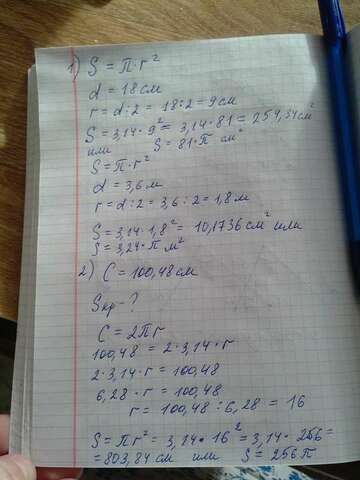 1) S = π·r²
d = 18 см
r = d:2 = 18:2 = 9 см
S = 3,14·9² = 3,14·81 = 254,34 см²
или S = 81·π см²
S = π·r²
d = 3,6 м
r = d:2 = 3,6:2 = 1,8 м
S = 3,14·1,8² = 10,1736 см² или
S = 3,24·π м²
2) C = 100,48 см
Sкр - ?
C = 2πr
100,48 = 2·3,14·r
2·3,14·r = 100,48
6,28·r = 100,48
r = 100,48:6,28 = 16
S = πr² = 3,14·16² = 3,14·256 =
= 803,84 см или S = 256π